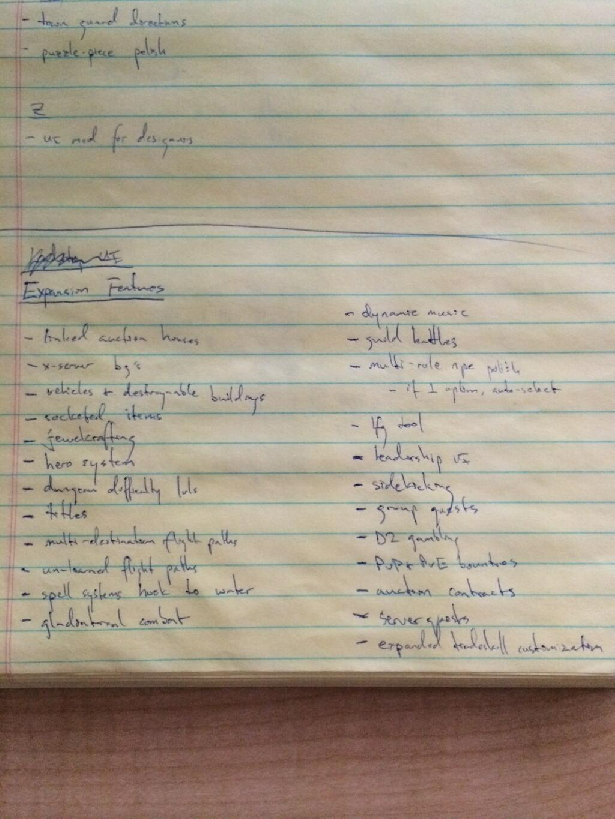 - town guard directions
- puzzle-piece polish
2
- UI mod for designers
UI
Expansion Features
- linked auction houses
- x-server bg's
- vehicles + destroyable buildings
- socketed items
- jewelcrafting
- hero system
- dungeon difficulty lvls
- titles
- multi-destination flight paths
- un-learned flight paths
- spell systems hook to water
- gladiatorial combat
- dynamic music
- guild battles
- multi-role npc polish
- if 1 option, auto-select
- lfg tool
- leadership UI
- sidekicking
- group quests
- D2 gambling
- PvP + PvE bounties
- auction contracts
- server quests
- expanded tradeskill customization